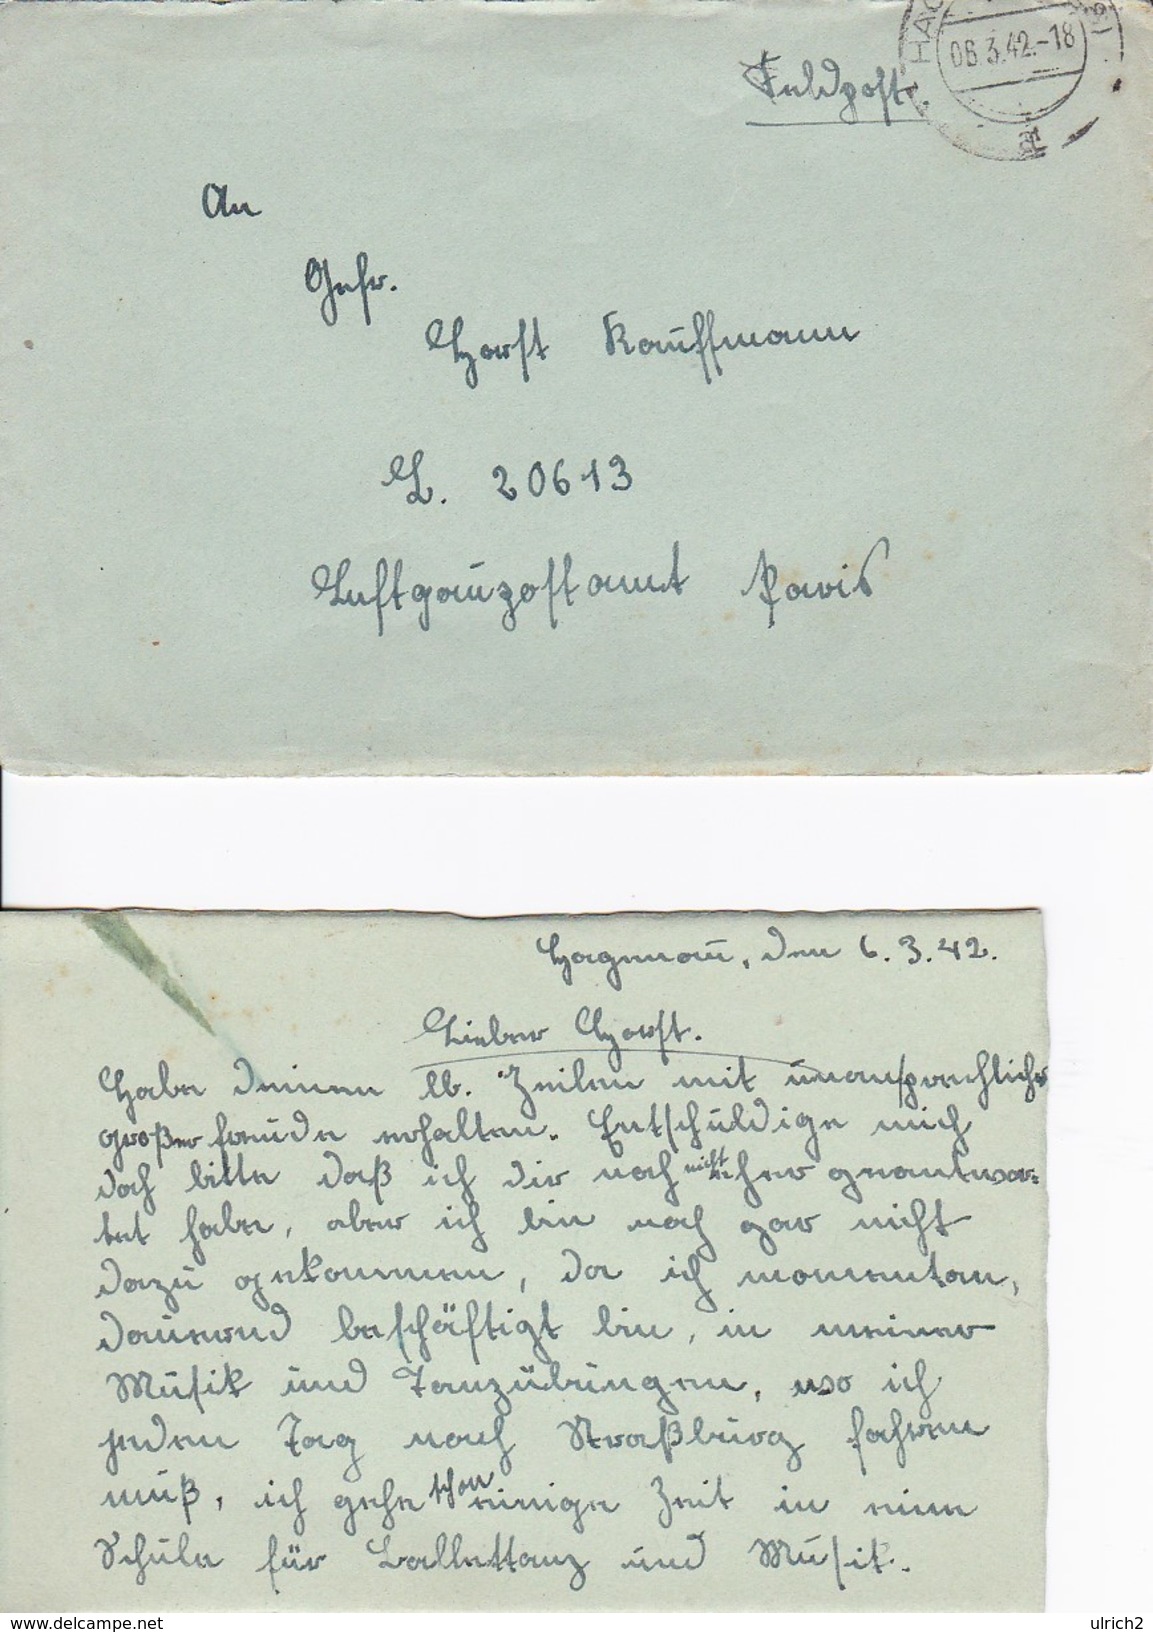 Feldpost.
06.3.42.-18
a
An
Gefr.
Horst Kauffmann
L. 20613
Luftgaupostamt Paris
Hagenau, den 6.3.42.
Lieber Horst.
Habe deinen lb. Zeilen mit unaussprechlicher
großer freude erhalten. Entschuldige mich
doch bitte daß ich dir noch nicht eher geantwor-
tet habe, aber ich bin noch gar nicht
dazu gekommen, da ich momentan,
dauernd beschäftigt bin, in meiner
Musik und Tanzübungen, wo ich
jeden Tag nach Straßburg fahren
muß, ich gehe schon einige Zeit in eine
Schule für Ballettanz und Musik.
www.delcampe.net
ulrich2